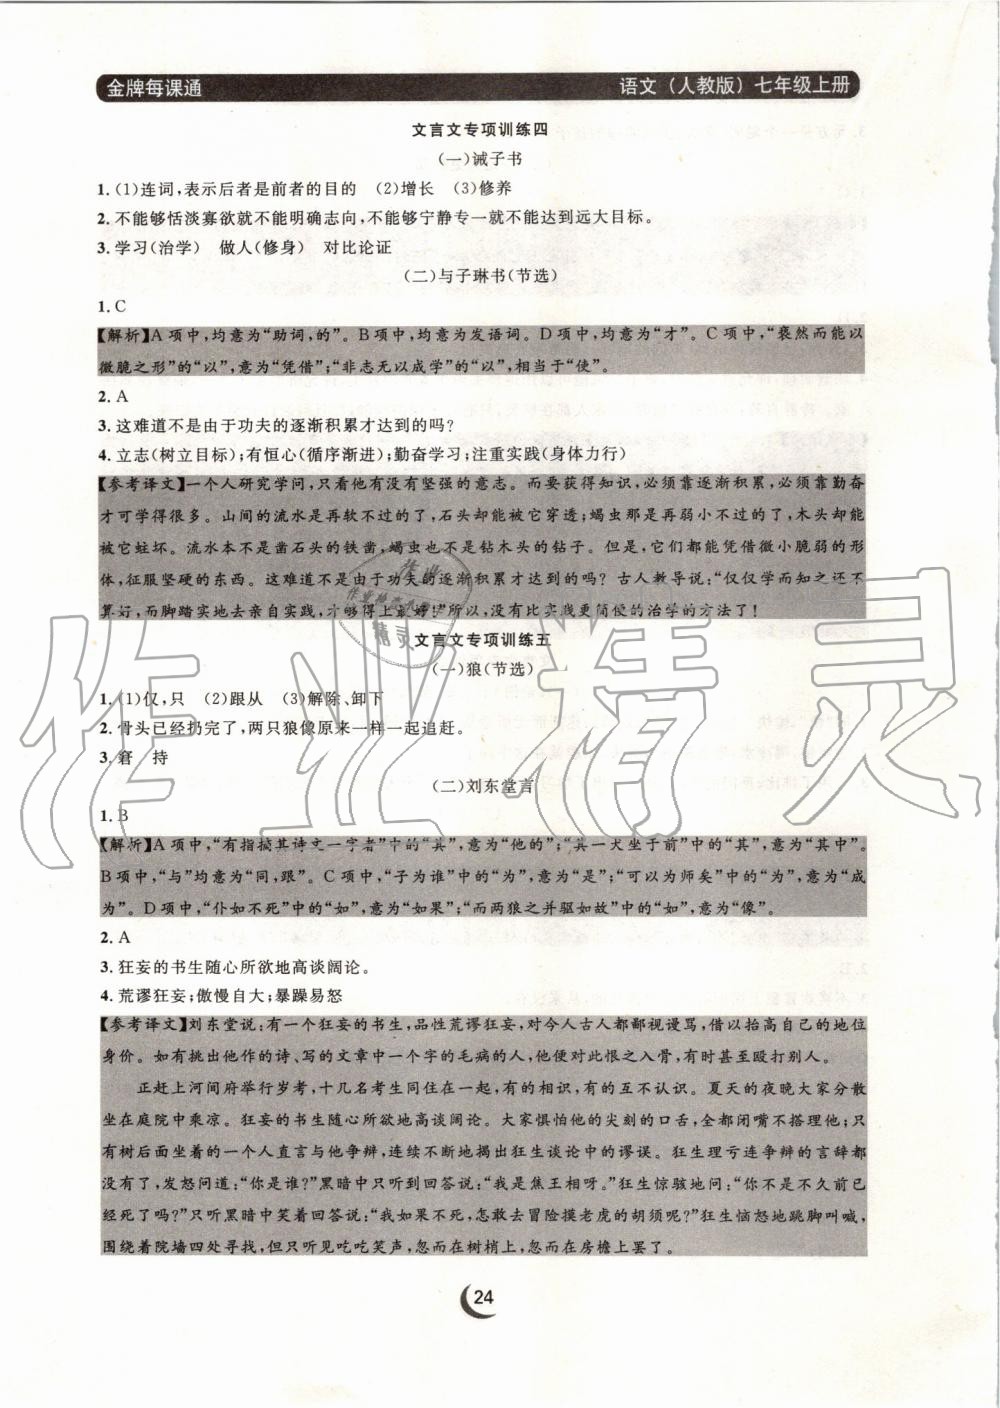 金牌每课通
语文（人教版）七年级上册
文言文专项训练四
(一)诫子书
1. (1)连词,表示后者是前者的目的 (2)增长 (3)修养
2. 不能够恬淡寡欲就不能明确志向,不能够宁静专一就不能达到远大目标。
3. 学习(治学) 做人(修身) 对比论证
(二)与子琳书(节选)
1. C
【解析】A项中,均意为“助词,的”。B项中,均意为发语词。D项中,均意为“才”。C项中,“褎然而能以
微脆之形”的“以”,意为“凭借”;“非志无以成学”的“以”,相当于“使”。
2. A
3. 这难道不是由于功夫的逐渐积累才达到的吗?
4. 立志(树立目标);有恒心(循序渐进);勤奋学习;注重实践(身体力行)
【参考译文】一个人研究学问,只看他有没有坚强的意志。而要获得知识,必须靠逐渐积累,必须靠勤奋
才可学得很多。山间的流水是再软不过的了,石头却能被它穿透;蝎虫那是再弱小不过的了,木头却能
被它蛀坏。流水本不是凿石头的铁凿,蝎虫也不是钻木头的钻子。但是,它们都能凭借微小脆弱的形
体,征服坚硬的东西。这难道不是由于功夫的逐渐积累才达到的吗?古人教导说:“仅仅学而知之还不
算好,而脚踏实地去亲自实践,才够得上最好!”所以,没有比实践更简便的治学的方法了!
文言文专项训练五
(一)狼(节选)
1. (1)仅,只 (2)跟从 (3)解除、卸下
2. 骨头已经扔完了,两只狼像原来一样一起追赶。
3. 窘 持
(二)刘东堂言
1. B
【解析】A项中,“有指摘其诗文一字者”中的“其”,意为“他的”;“其一犬坐于前”中的“其”,意为“其中”。
B项中,“与”均意为“同,跟”。C项中,“子为谁”中的“为”,意为“是”;“可以为师矣”中的“为”,意为“成
为”。D项中,“仆如不死”中的“如”,意为“如果”;“而两狼之并驱如故”中的“如”,意为“像”。
2. A
3. 狂妄的书生随心所欲地高谈阔论。
4. 荒谬狂妄;傲慢自大;暴躁易怒
【参考译文】刘东堂说:有一个狂妄的书生,品性荒谬狂妄,对今人古人都鄙视谩骂,借以抬高自己的地位
身价。如有挑出他作的诗、写的文章中一个字的毛病的人,他便对此恨之入骨,有时甚至殴打别人。
正赶上河间府举行岁考,十几名考生同住在一起,有的相识,有的互不认识。夏天的夜晚大家分散
坐在庭院中乘凉。狂妄的书生随心所欲地高谈阔论。大家惧怕他的尖刻的口舌,全都闭嘴不搭理他;只
有树后面坐着的一个人直言与他争辩,连续不断地揭出狂生谈论中的谬误。狂生理亏连争辩的言辞都
没有了,发怒问道:“你是谁?”黑暗中只听到回答说:“我是焦王相呀。”狂生惊骇地问:“你不是不久前已
经死了吗?”只听黑暗中笑着回答说:“我如果不死,怎敢去冒险摸老虎的胡须呢?”狂生恼怒地跳脚叫喊,
围绕着院墙四处寻找,但只听见吃吃笑声,或在树梢上,或在房檐上罢了。
24
作业精灵